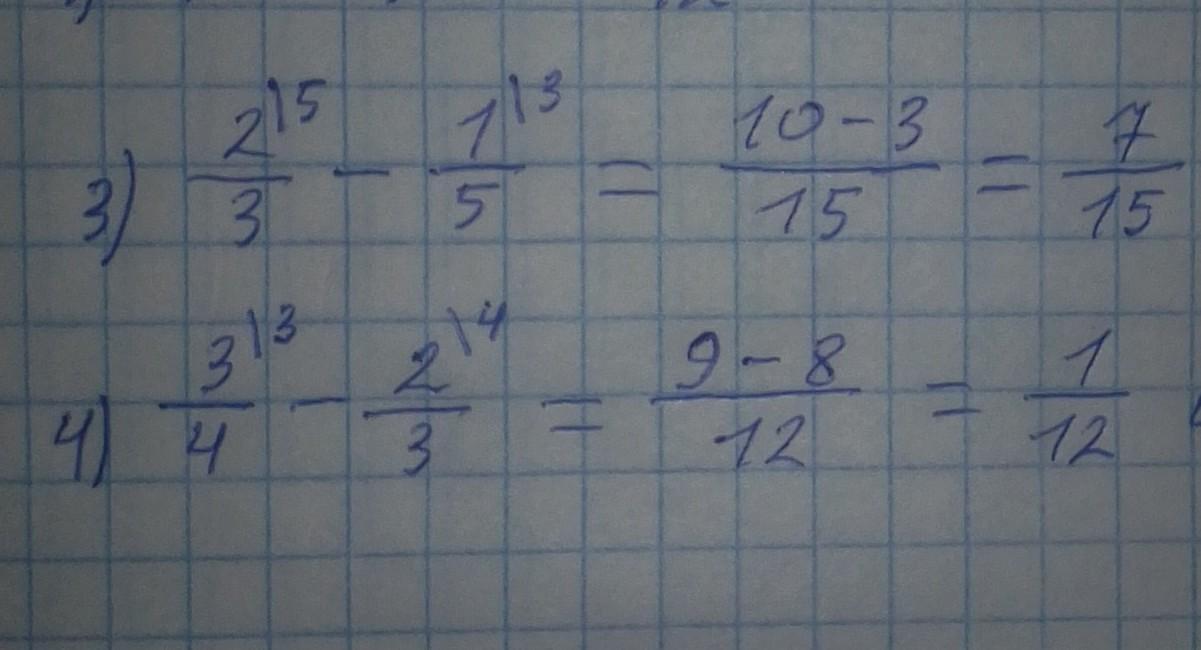 3) 2\5/3 - 1\3/5 = 10-3/15 = 7/15
4) 3\3/4 - 2\4/3 = 9-8/12 = 1/12